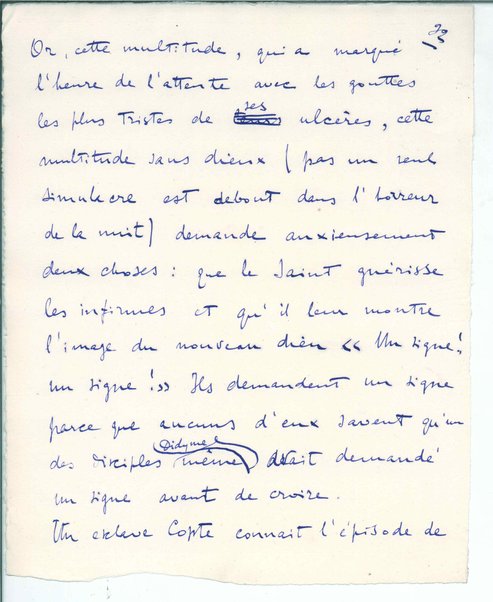 Or, cette multitude, qui a marqué
l'heure de l'attente avec les gouttes
les plus tristes de ses ulcères, cette
multitude sans dieux (pas un seul
simulacre est debout dans l'horreur
de la nuit) demande anxieusement
deux choses : que le Saint guérisse
les infirmes et qu'il leur montre
l'image du nouveau dieu « Un signe !
un signe ! » Ils demandent un signe
parce que aucuns d'eux savent qu'un
des disciples même, Didyme, avait demandé
un signe avant de croire.
Un esclave Copte connait l'épisode de